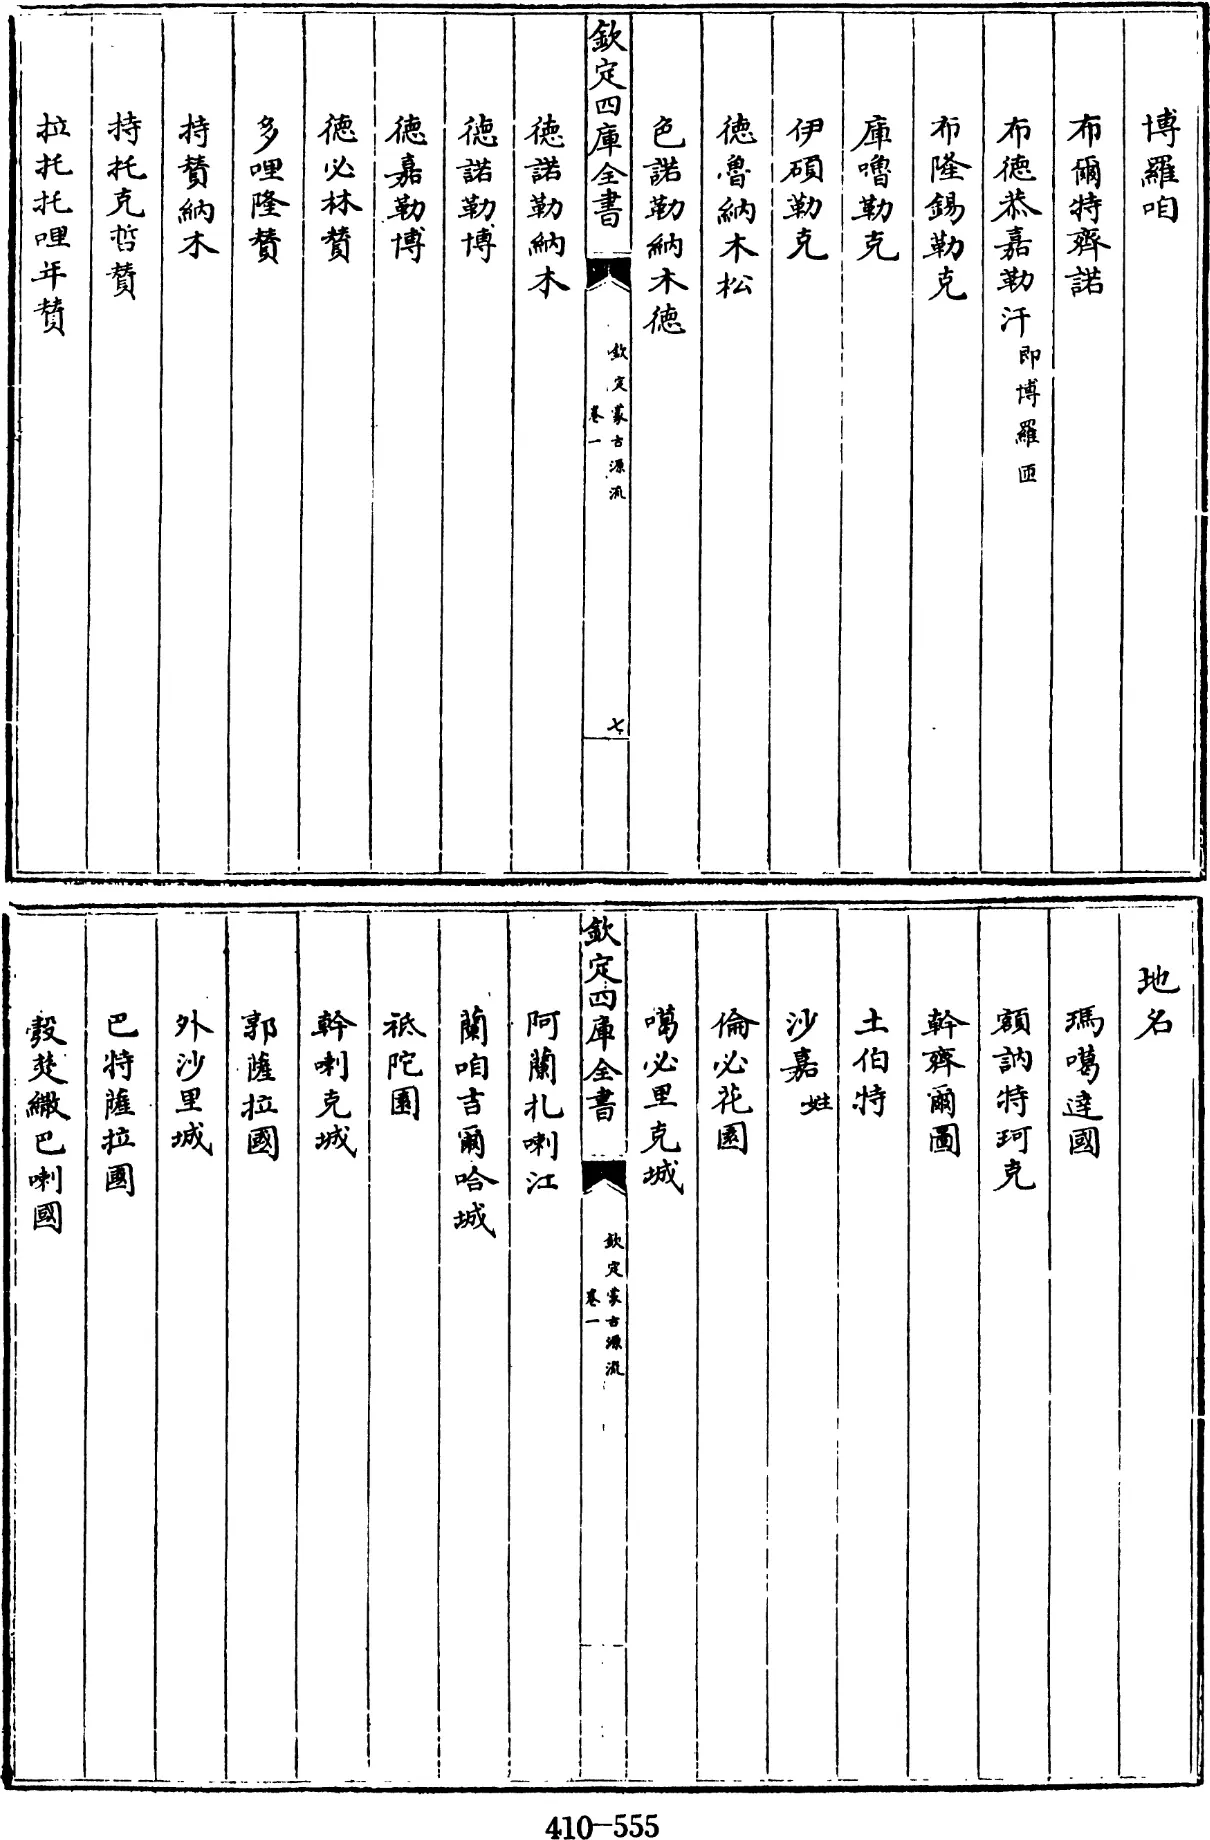 博羅咱
布爾特齊諾
布德恭嘉勒汗即博羅匝
布隆錫勒克
庫嚕勒克
伊碩勒克
德魯納木松
色諾勒納木德
欽定四庫全書
欽定蒙古源流
卷一
七
德諾勒納木
德諾勒博
德嘉勒博
德必林贊
多哩隆贊
持贊納木
持托克哲贊
拉托托哩年贊
地名
瑪噶達國
額訥特珂克
斡齊爾圖
土伯特
沙嘉姓
倫必花園
噶必里克城
欽定四庫全書
欽定蒙古源流
卷一
阿蘭扎喇江
蘭咱吉爾哈城
祇陀園
斡喇克城
郭薩拉國
外沙里城
巴特薩拉國
巴喇國
410-555